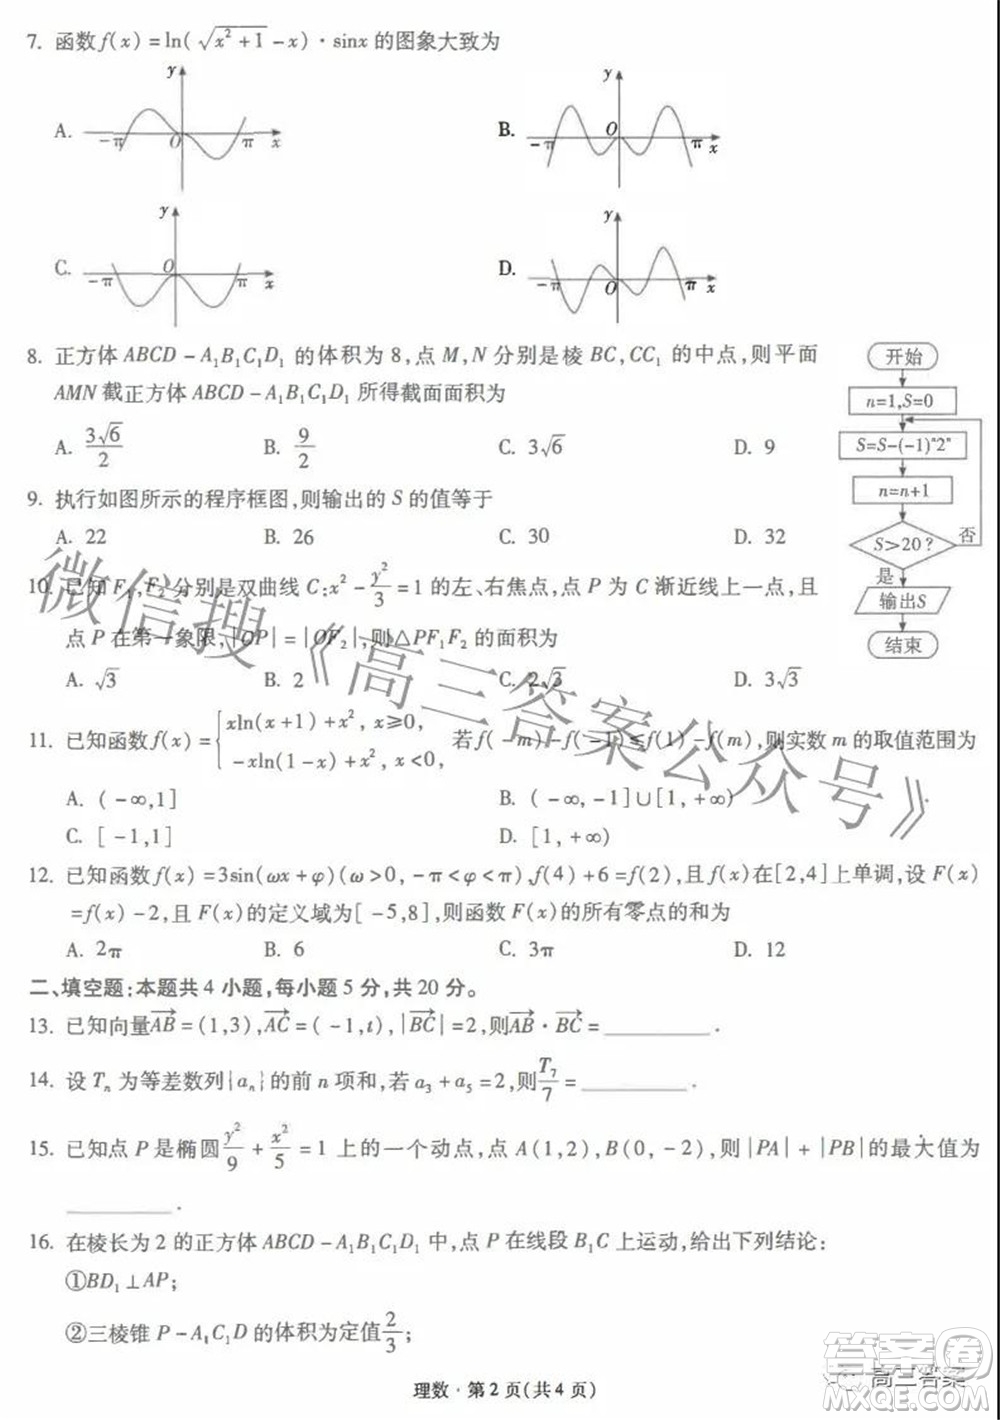 7. 函数f(x)=ln(√(x²+1)-x)·sinx的图象大致为
A. y O -π π x
B. y O -π π x
C. y O -π π x
D. y O -π π x
8. 正方体ABCD-A₁B₁C₁D₁的体积为8,点M,N分别是棱BC,CC₁的中点,则平面
AMN截正方体ABCD-A₁B₁C₁D₁所得截面面积为
A. 3√6/2 B. 9/2 C. 3√6 D. 9
9. 执行如图所示的程序框图,则输出的S的值等于
A. 22 B. 26 C. 30 D. 32
开始
n=1,S=0
S=S-(-1)ⁿ2ⁿ
n=n+1
S>20? 否
是
输出S
结束
10. 已知F₁,F₂分别是双曲线C:x²-y²/3=1的左、右焦点,点P为C渐近线上一点,且
点P在第一象限,|OP|=|OF₂|,则△PF₁F₂的面积为
A. √3 B. 2 C. 2√3 D. 3√3
11. 已知函数f(x)={xln(x+1)+x², x≥0,
-xln(1-x)+x², x<0, 若f(-m)-f(-1)≤f(1)-f(m),则实数m的取值范围为
A. (-∞,1] B. (-∞,-1]∪[1,+∞)
C. [-1,1] D. [1,+∞)
12. 已知函数f(x)=3sin(ωx+φ)(ω>0,-π<φ<π),f(4)+6=f(2),且f(x)在[2,4]上单调,设F(x)
=f(x)-2,且F(x)的定义域为[-5,8],则函数F(x)的所有零点的和为
A. 2π B. 6 C. 3π D. 12
二、填空题:本题共4小题,每小题5分,共20分。
13. 已知向量AB=(1,3),AC=(-1,t),|BC|=2,则AB·BC=________.
14. 设Tₙ为等差数列{aₙ}的前n项和,若a₃+a₅=2,则T₇/7=________.
15. 已知点P是椭圆y²/9+x²/5=1上的一个动点,点A(1,2),B(0,-2),则|PA|+|PB|的最大值为
________.
16. 在棱长为2的正方体ABCD-A₁B₁C₁D₁中,点P在线段B₁C上运动,给出下列结论:
①BD₁⊥AP;
②三棱锥P-A₁C₁D的体积为定值2/3;
理数·第2页(共4页)
微信搜《高三答案公众号》
高三答案
答案卷